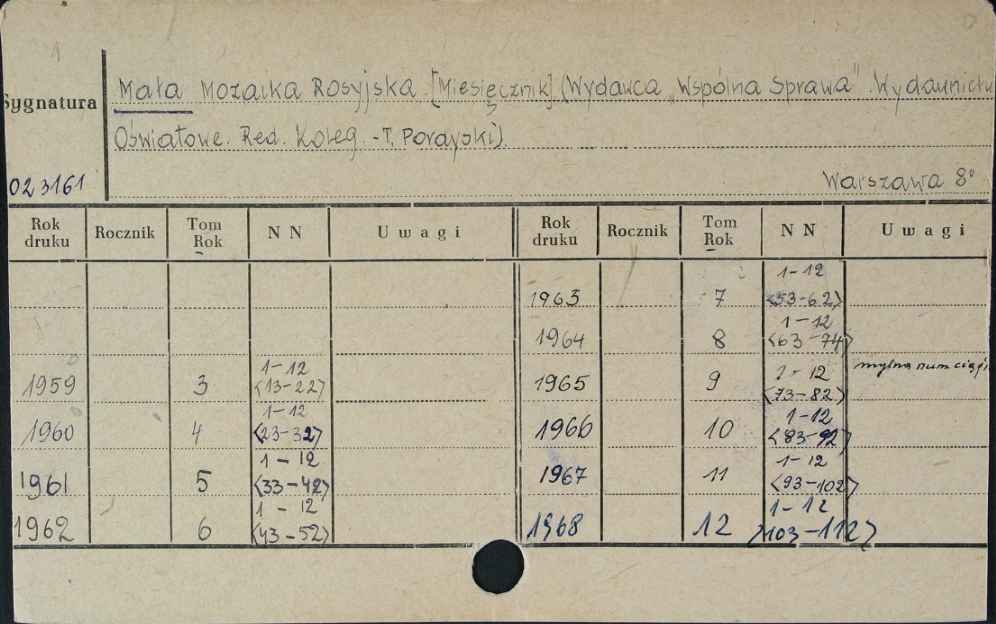 1
Mała Mozaika Rosyjska [Miesięcznik] (Wydawca „Wspólna Sprawa" Wydawnictw
Sygnatura
Oświatowe. Red. Koleg. - T. Porayski).
023161
Warszawa 8°
Rok druku Rocznik Tom Rok NN Uwagi Rok druku Rocznik Tom Rok NN Uwagi
1963 7 1-12 <53-62>
1964 8 1-12 <63-74>
1959 3 1-12 <13-22> 1965 9 1-12 <73-82> mylna num ciągł
1960 4 1-12 <23-32> 1966 10 1-12 <83-92>
1961 5 1-12 <33-42> 1967 11 1-12 <93-102>
1962 6 1-12 <43-52> 1968 12 1-12 >103-112>